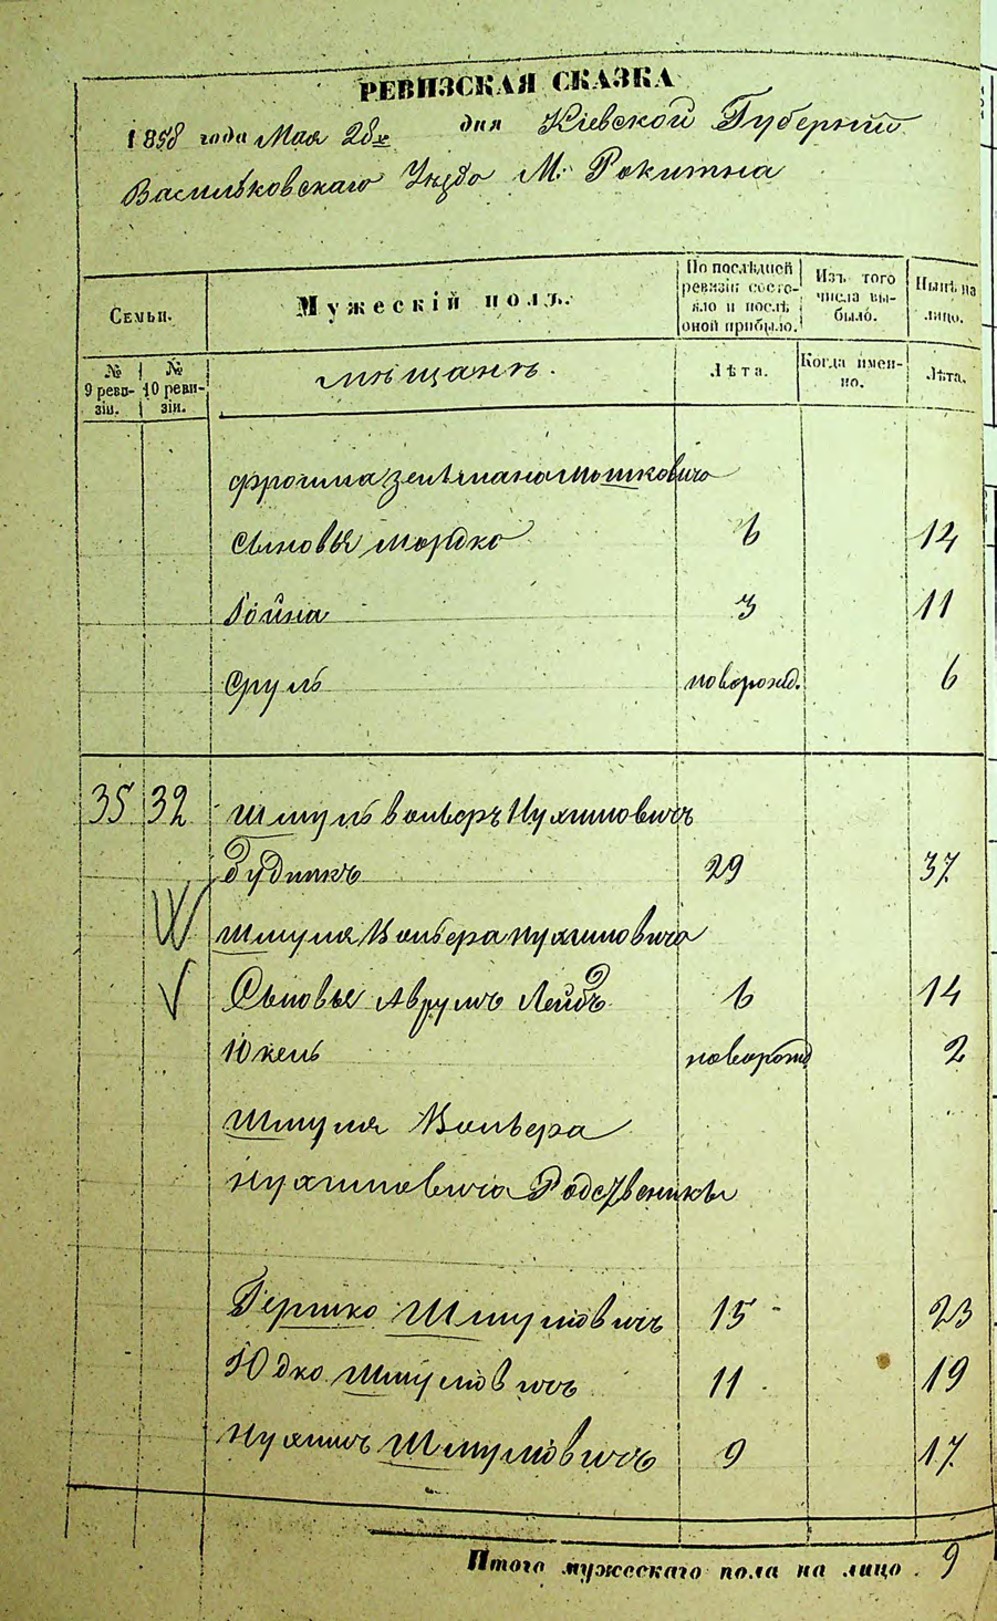 РЕВИЗСКАЯ СКАЗКА
1858 года Мая 28го дня Кіевской Губерніи
Васильковскаго Уѣзда М. Рокитна
Семьи. Мужескій полъ. По послѣдней ревизіи состояло и послѣ оной прибыло. Изъ того числа выбыло. Нынѣ на лицо.
№ 9 ревизіи. № 10 ревизіи. мѣщанъ. Лѣта. Когда именно. Лѣта.
Фроима Зельмана Мошковича
сыновья Мордко 6 14
Гойна 3 11
Сруль новорожд. 6
35 32 Шмуль Вольферъ Нухимовичъ
Будникъ 29 37
Шмуля Вольфера Нухимовича
Сыновья Аврумъ Лейбъ 6 14
Юкель новорожд 2
Шмуля Вольфера
Нухимовича Родственики
Гершко Шмуловичъ 15 23
Юдко Шмуловичъ 11 19
Нухимъ Шмуловичъ 9 17
Итого мужескаго пола на лицо . 9